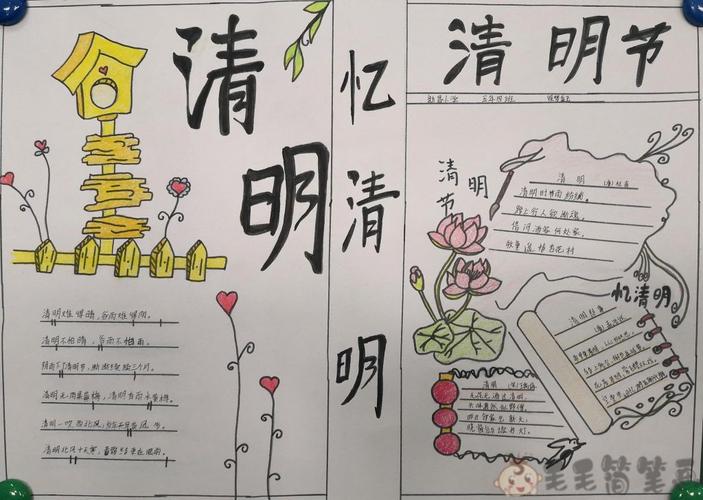 清明
忆清明
清明难得晴，谷雨难得阴。
清明不怕晴，谷雨不怕雨。
阴雨下了清明节，断断续续三个月。
清明无雨旱黄梅，清明有雨水黄梅。
清明一吹西北风，
清明北风十天寒，春霜结束在眼前。
清明节
五年四班
清明节
清明 (唐)杜牧
清明时节雨纷纷，
路上行人欲断魂。
借问酒家何处
牧童遥指杏花村
忆清明
清明即事
(唐)孟浩然
清明
无花无酒过清明，
兴味萧然似野僧。
昨日邻家乞新火，
晓窗分与读书灯。
毛毛简笔画